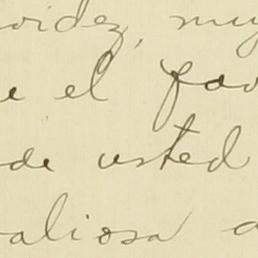 videz, muy
e el fav
de usted
aliosa a